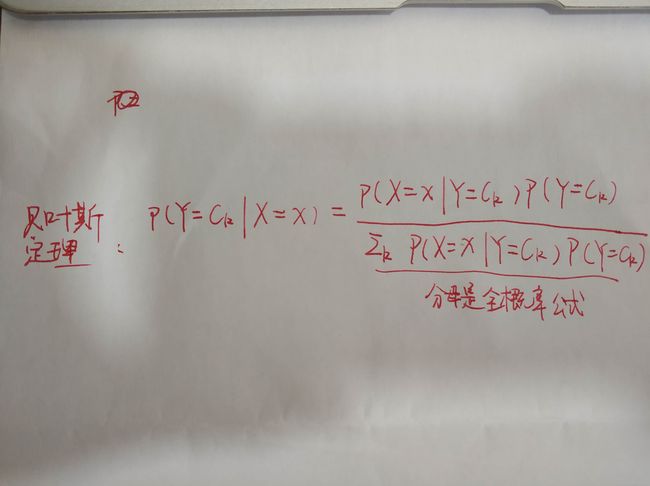 贝叶斯
定理：
P(Y=Ck|X=x) = P(X=x|Y=Ck)P(Y=Ck)
Σk P(X=x|Y=Ck)P(Y=Ck)
分母是全概率公式